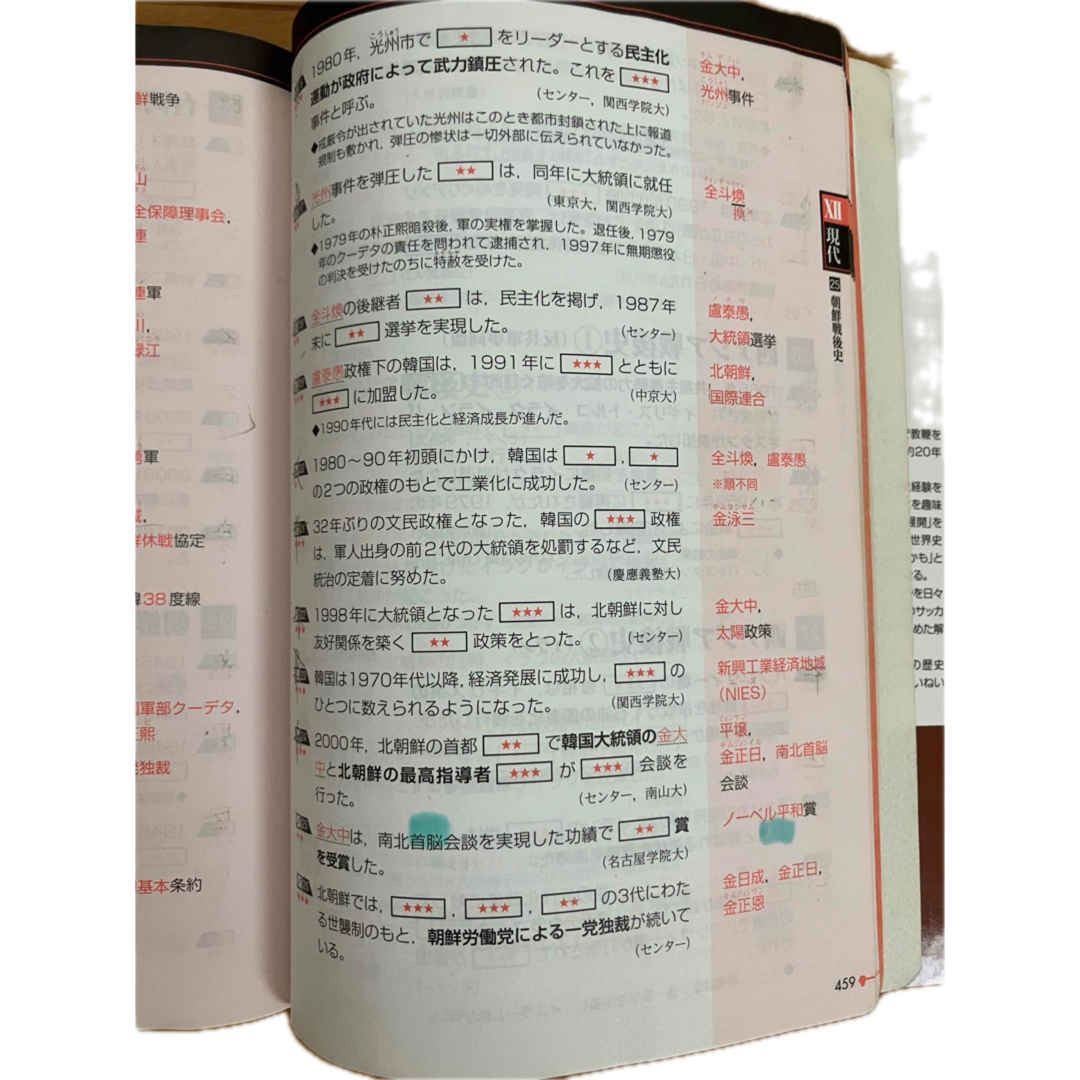 1980年，光州市で ★ をリーダーとする民主化
運動が政府によって武力鎮圧された。これを ★★★
事件と呼ぶ。
(センター，関西学院大)
◆戒厳令が出されていた光州はこのとき都市封鎖された上に報道
規制も敷かれ，弾圧の惨状は一切外部に伝えられていなかった。
金大中，
光州事件
光州事件を弾圧した ★★ は，同年に大統領に就任
した。
(東京大，関西学院大)
◆1979年の朴正熙暗殺後，軍の実権を掌握した。退任後，1979
年のクーデタの責任を問われて逮捕され，1997年に無期懲役
の判決を受けたのちに特赦を受けた。
全斗煥
換
全斗煥の後継者 ★★ は，民主化を掲げ，1987年
末に ★★ 選挙を実現した。
(センター)
盧泰愚，
大統領選挙
盧泰愚政権下の韓国は，1991年に ★★★ とともに
★★★ に加盟した。
(中京大)
◆1990年代には民主化と経済成長が進んだ。
北朝鮮，
国際連合
1980～90年初頭にかけ，韓国は ★ ， ★
の2つの政権のもとで工業化に成功した。
(センター)
全斗煥，盧泰愚
※順不同
32年ぶりの文民政権となった，韓国の ★★★ 政権
は，軍人出身の前2代の大統領を処罰するなど，文民
統治の定着に努めた。
(慶應義塾大)
金泳三
1998年に大統領となった ★★★ は，北朝鮮に対し
友好関係を築く ★★ 政策をとった。
(センター)
金大中，
太陽政策
韓国は1970年代以降，経済発展に成功し， ★★★ の
ひとつに数えられるようになった。
(関西学院大)
新興工業経済地域
(NIES)
2000年，北朝鮮の首都 ★★ で韓国大統領の金大
中と北朝鮮の最高指導者 ★★★ が ★★★ 会談を
行った。
(センター，南山大)
平壌，
金正日，南北首脳
会談
金大中は，南北首脳会談を実現した功績で ★★ 賞
を受賞した。
(名古屋学院大)
ノーベル平和賞
北朝鮮では， ★★★ ， ★★★ ， ★★ の3代にわた
る世襲制のもと，朝鮮労働党による一党独裁が続いて
いる。
(センター)
金日成，金正日，
金正恩
XII
現代
25
朝鮮戦後史
459
鮮戦争
山
全保障理事会，
連
軍
川，
緑江
軍
休戦協定
38度線
軍部クーデタ，
熙
独裁
基本条約
教鞭を
約20年
経験を
を趣味
展開」を
世界史
かも」と
る。
を日々
のサッカ
めた解
の歴史
いねい